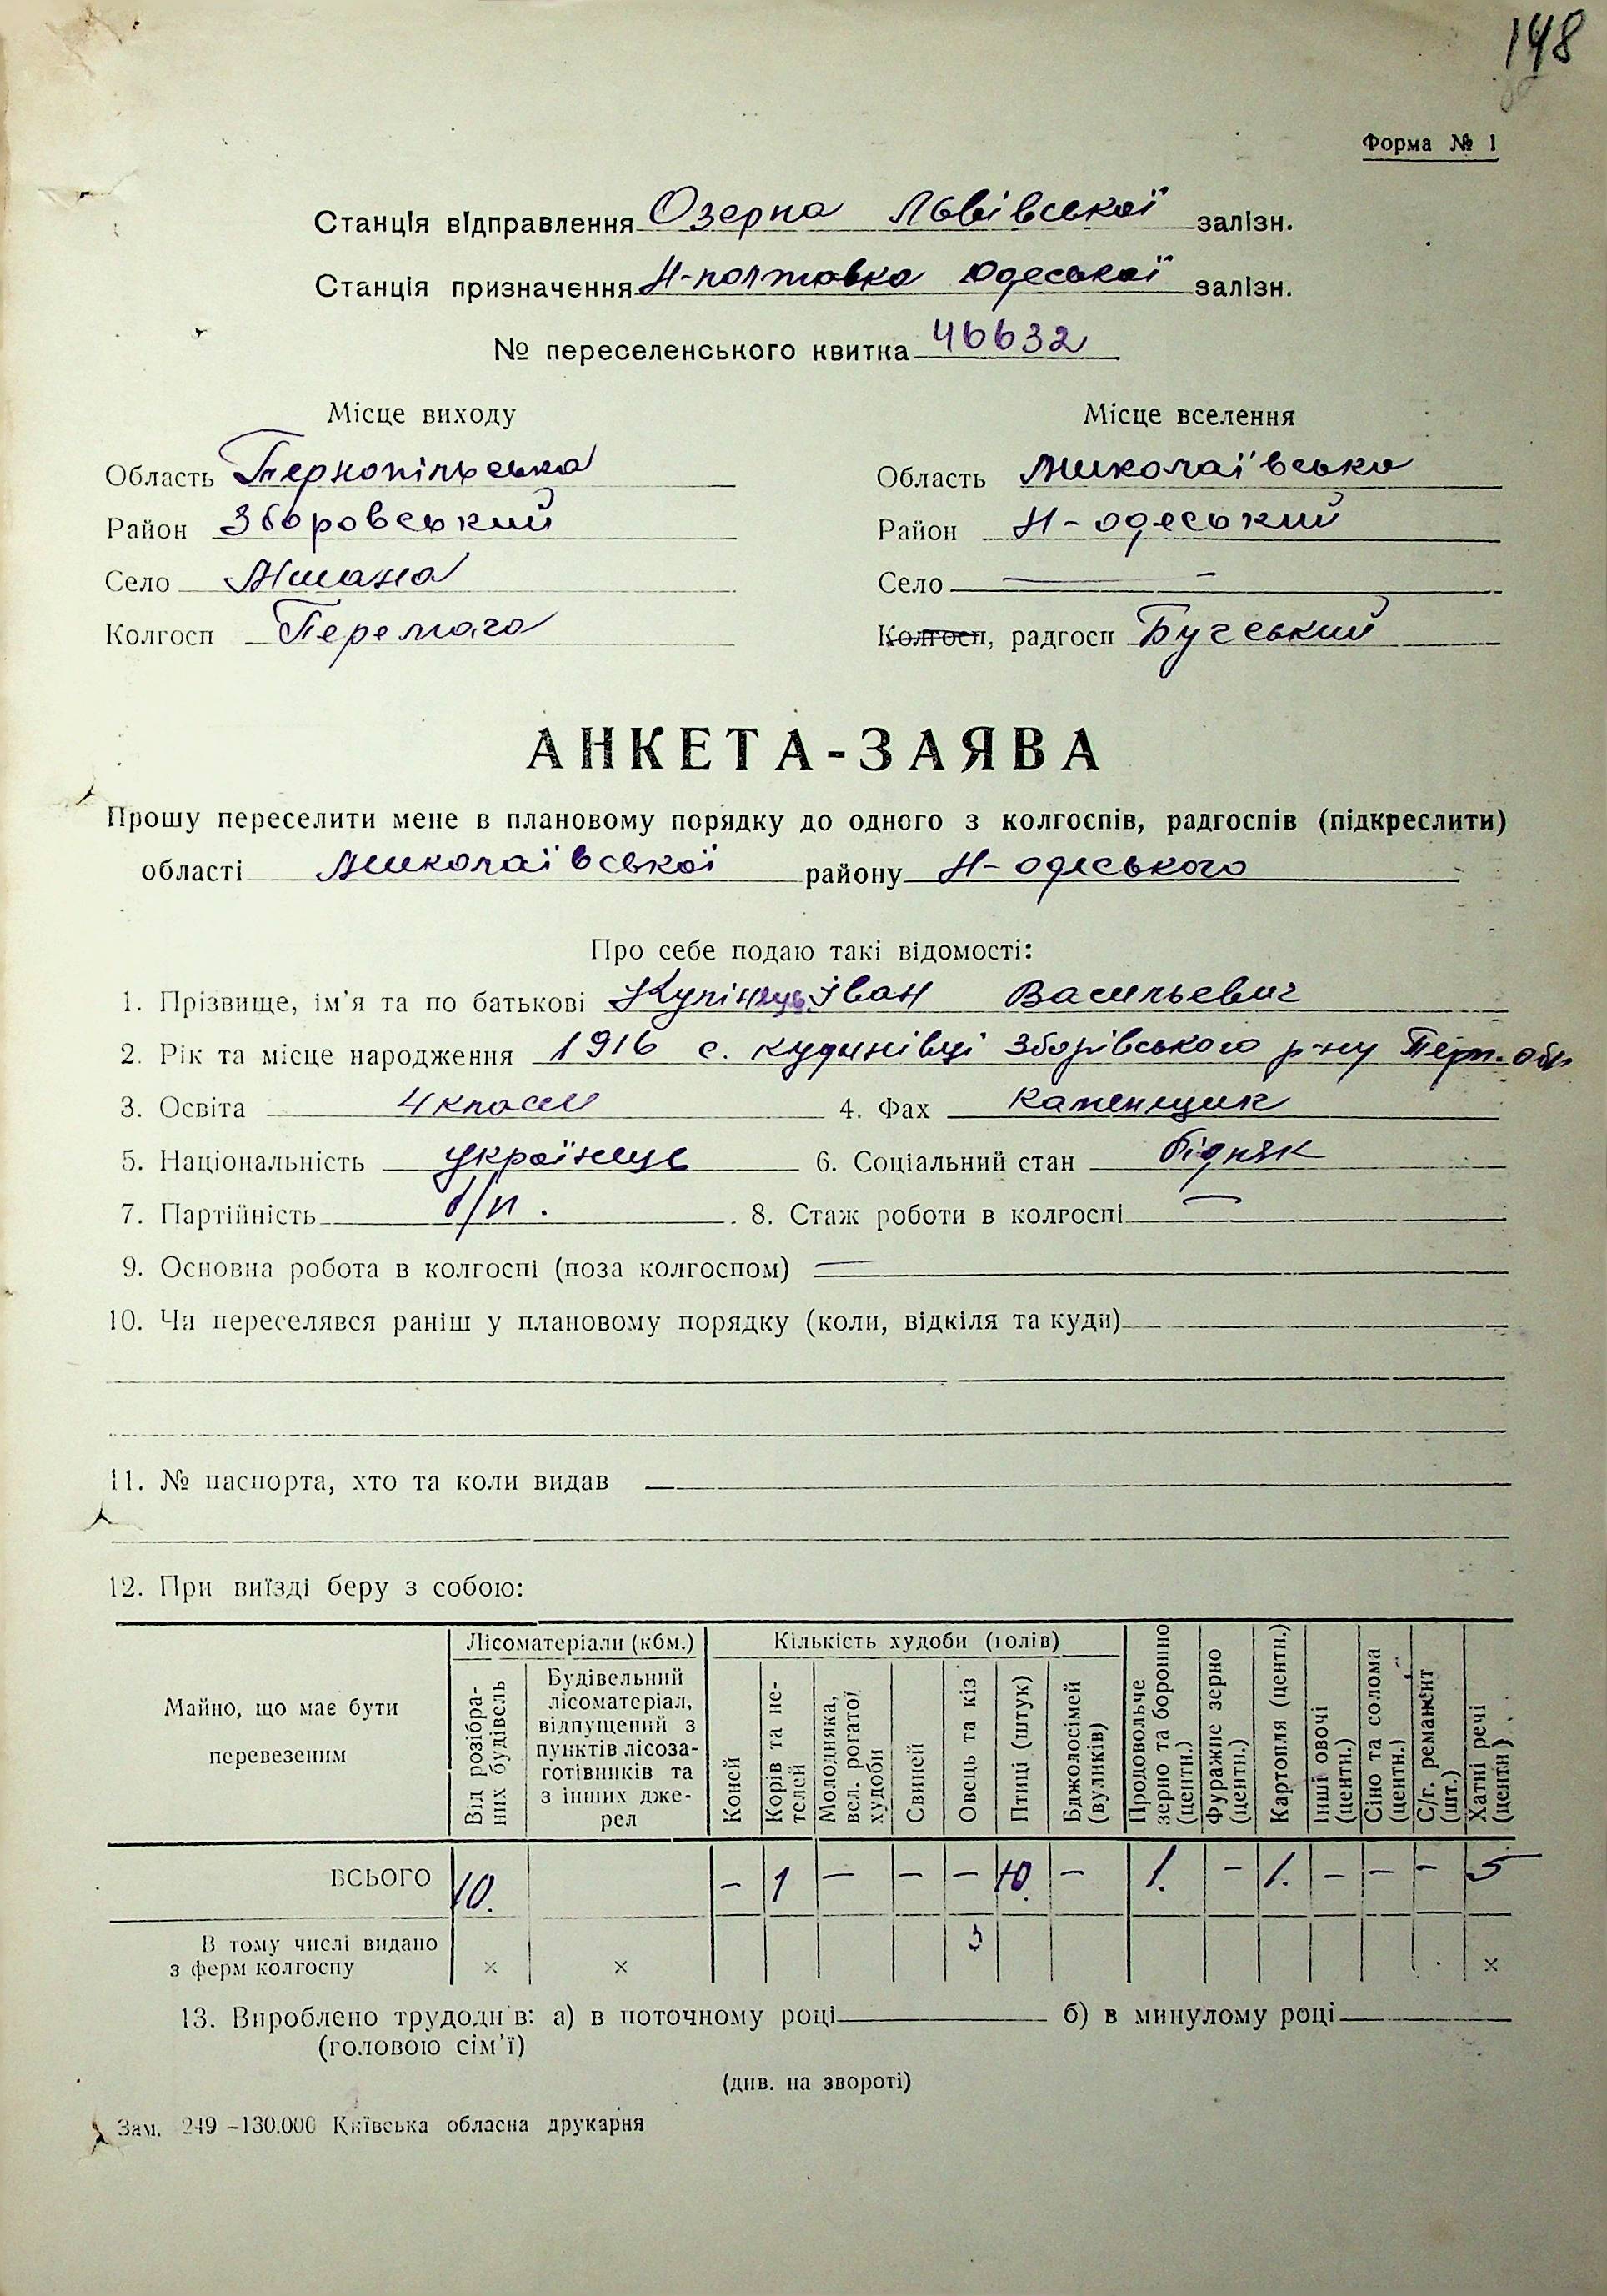 148
Форма № 1
Станція відправлення Озерна Львівської залізн.
Станція призначення Н-полтавка Одеської залізн.
№ переселенського квитка 46632
Місце виходу Місце вселення
Область Тернопільська Область Миколаївська
Район Зборовський Район Н-одеський
Село Мшана Село —
Колгосп Перемога Колгосп, радгосп Бугський
АНКЕТА-ЗАЯВА
Прошу переселити мене в плановому порядку до одного з колгоспів, радгоспів (підкреслити)
області Миколаївської району Н-одеського
Про себе подаю такі відомості:
1. Прізвище, ім'я та по батькові Купінець Іван Васильевич
2. Рік та місце народження 1916 с. Кудинівці Зборівського р-ну Терн. обл
3. Освіта 4 класи 4. Фах каменщик
5. Національність українець 6. Соціальний стан бідняк
7. Партійність б/п. 8. Стаж роботи в колгоспі —
9. Основна робота в колгоспі (поза колгоспом) —
10. Чи переселявся раніш у плановому порядку (коли, відкіля та куди)
11. № паспорта, хто та коли видав
12. При виїзді беру з собою:
Майно, що має бути перевезеним
Лісоматеріали (кбм.)
Від розібраних будівель
Будівельний лісоматеріал, відпущений з пунктів лісозаготівників та з інших джерел
Кількість худоби (голів)
Коней
Корів та нетелей
Молодняка, вел. рогатої худоби
Свиней
Овець та кіз
Птиці (штук)
Бджолосімей (вуликів)
Продовольче зерно та борошно (центн.)
Фуражне зерно (центн.)
Картопля (центн.)
Інші овочі (центн.)
Сіно та солома (центн.)
С/г. реманент (шт.)
Хатні речі (центн)
ВСЬОГО 10. – 1 – – – 10. – 1. – 1. – – – 5
В тому числі видано з ферм колгоспу × × 3 ×
13. Вироблено трудоднів: а) в поточному році б) в минулому році
(головою сім'ї)
(див. на звороті)
Зам. 249–130.000 Київська обласна друкарня